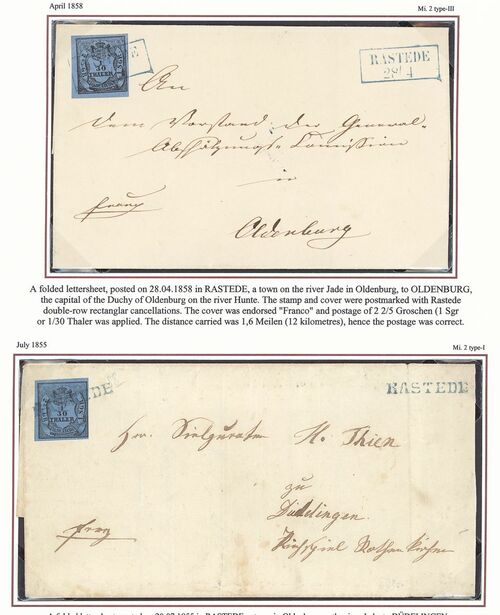 April 1858
Mi. 2 type-III
1
30
THALER
RASTEDE
28/4
An
dem Vorstand der General-
Abschätzungs Comission
in
franco
Oldenburg
A folded lettersheet, posted on 28.04.1858 in RASTEDE, a town on the river Jade in Oldenburg, to OLDENBURG,
the capital of the Duchy of Oldenburg on the river Hunte. The stamp and cover were postmarked with Rastede
double-row rectanglar cancellations. The cover was endorsed "Franco" and postage of 2 2/5 Groschen (1 Sgr
or 1/30 Thaler was applied. The distance carried was 1,6 Meilen (12 kilometres), hence the postage was correct.
July 1855
Mi. 2 type-I
1
30
THALER
RASTEDE
RASTEDE
H. Thien
zu
Düddingen
Kirchspiel
A folded lettersheet, posted on 20.07.1855 in RASTEDE